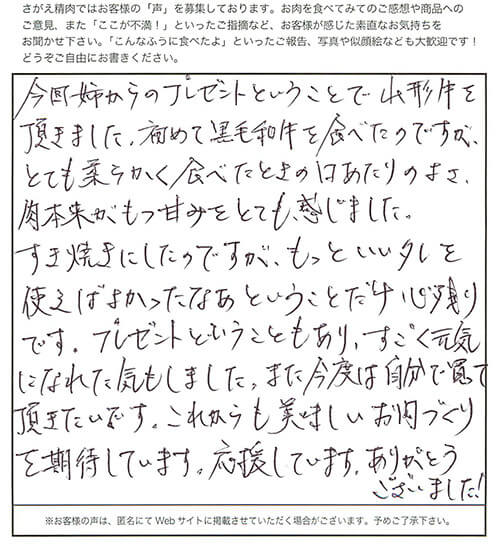 さがえ精肉ではお客様の「声」を募集しております。お肉を食べてみてのご感想や商品への
ご意見、また「ここが不満！」といったご指摘など、お客様が感じた素直なお気持ちを
お聞かせ下さい。「こんなふうに食べたよ」といったご報告、写真や似顔絵なども大歓迎です！
どうぞご自由にお書きください。
今回姉からのプレゼントということで山形牛を
頂きました。初めて黒毛和牛を食べたのですが、
とても柔らかく食べたときの口あたりのよさ、
肉本来がもつ甘みをとても感じました。
すき焼きにしたのですが、もっといいタレを
使えばよかったなあということだけ心残り
です。プレゼントということもあり、すごく元気
になれた気もしました。また今度は自分で買って
頂きたいです。これからも美味しいお肉づくり
を期待しています。応援しています。ありがとう
ございました！
※お客様の声は、匿名にてWebサイトに掲載させていただく場合がございます。予めご了承下さい。